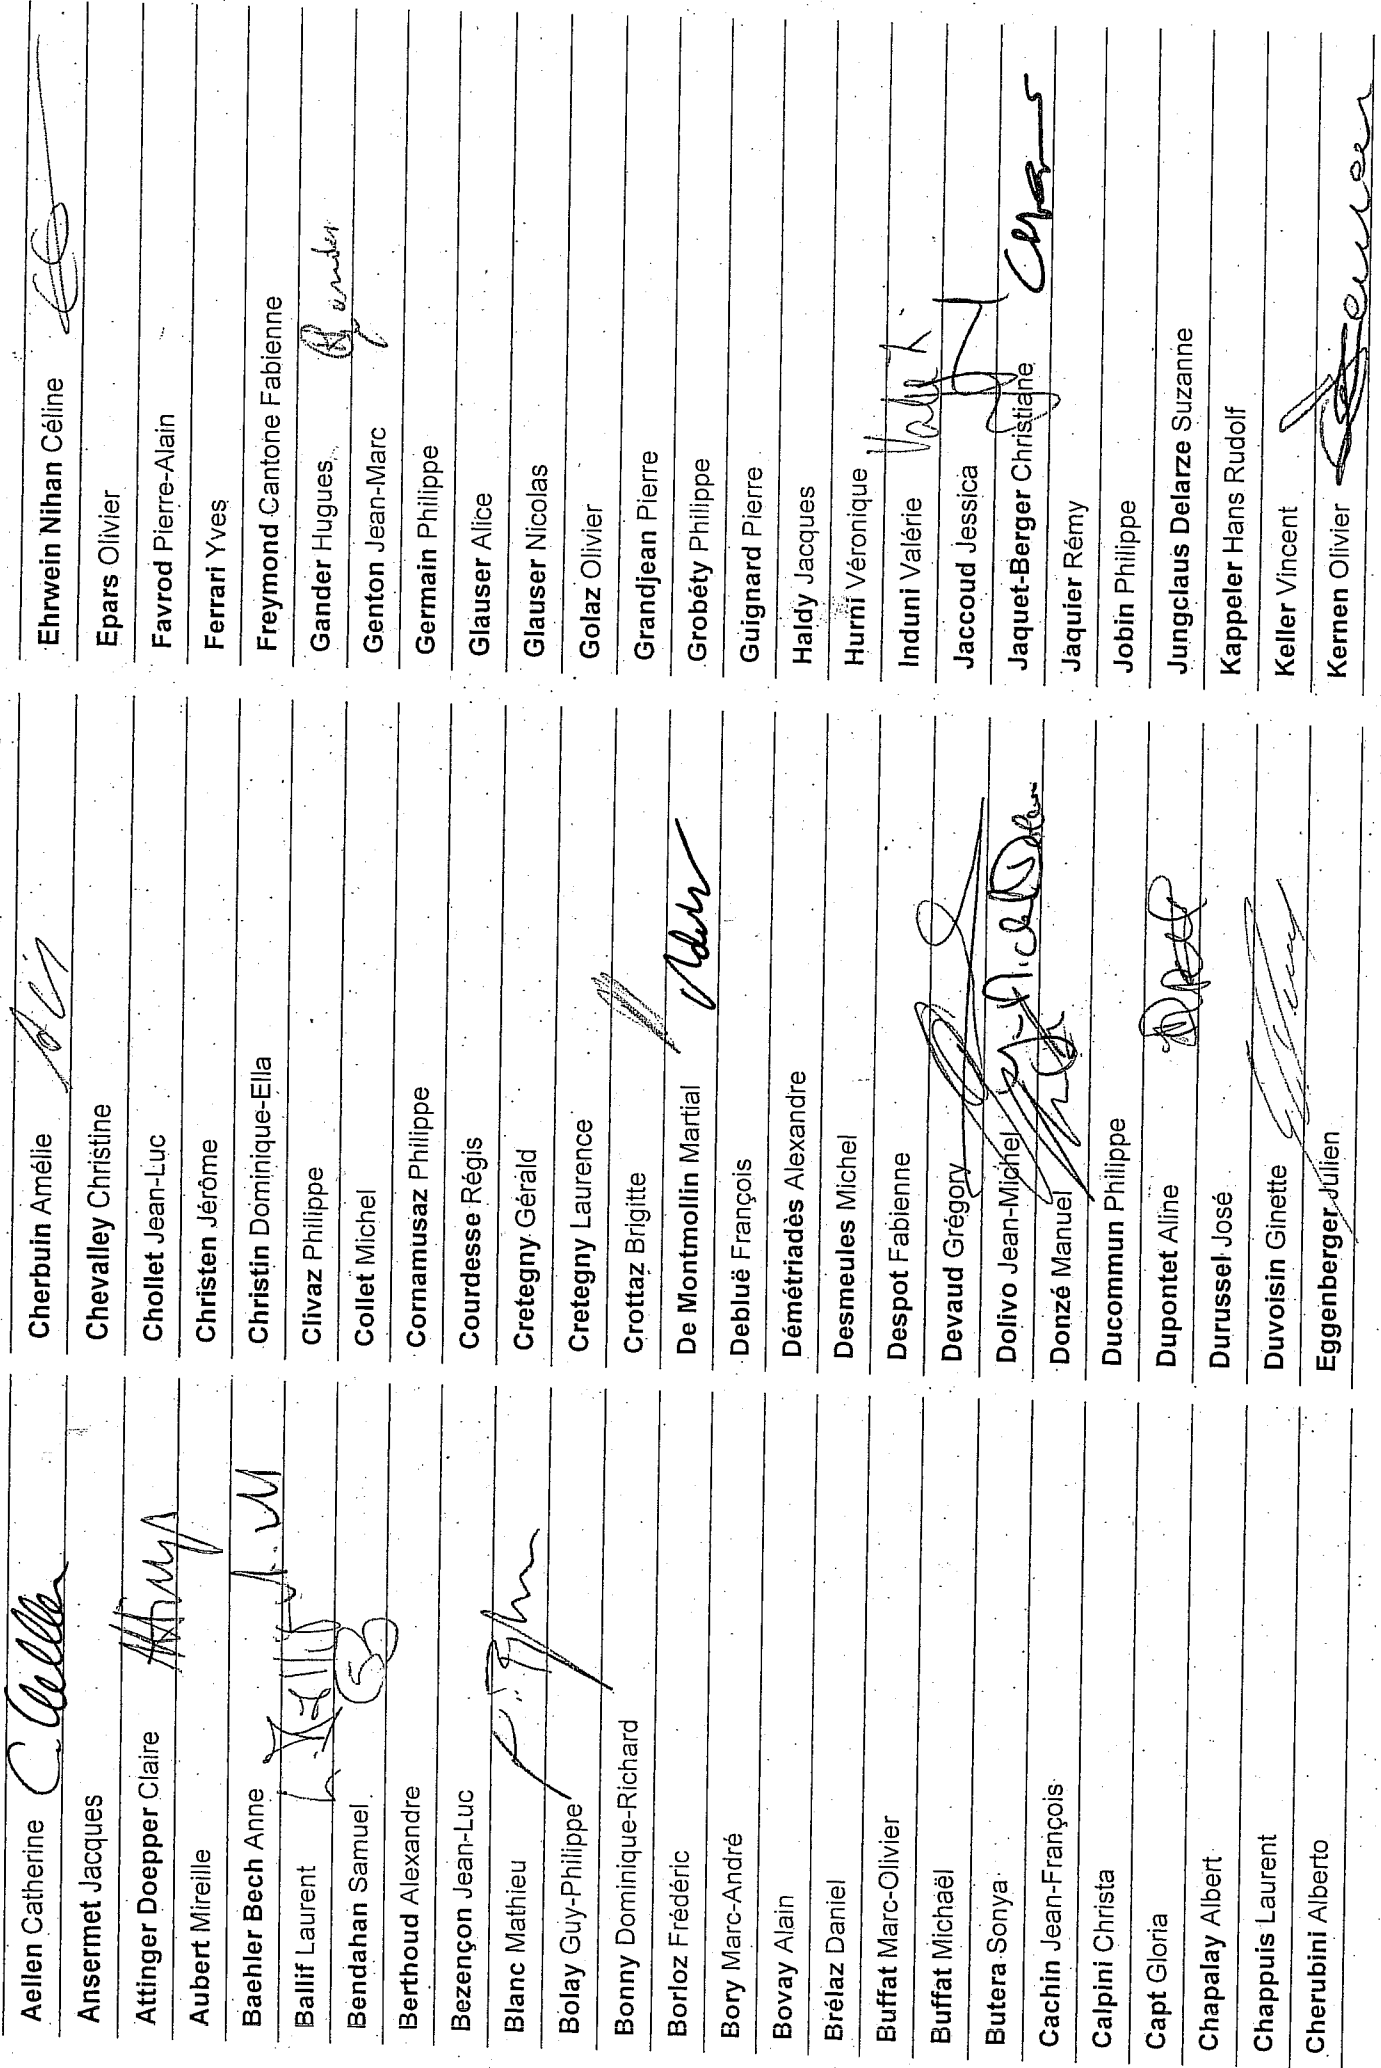 Aellen Catherine
Ansermet Jacques
Attinger Doepper Claire
Aubert Mireille
Baehler Bech Anne
Ballif Laurent
Bendahan Samuel
Berthoud Alexandre
Bezençon Jean-Luc
Blanc Mathieu
Bolay Guy-Philippe
Bonny Dominique-Richard
Borloz Frédéric
Bory Marc-André
Bovay Alain
Brélaz Daniel
Buffat Marc-Olivier
Buffat Michaël
Butera Sonya
Cachin Jean-François
Calpini Christa
Capt Gloria
Chapalay Albert
Chappuis Laurent
Cherubini Alberto
Cherbuin Amélie
Chevalley Christine
Chollet Jean-Luc
Christen Jérôme
Christin Dominique-Ella
Clivaz Philippe
Collet Michel
Cornamusaz Philippe
Courdesse Régis
Cretegny Gérald
Cretegny Laurence
Crottaz Brigitte
De Montmollin Martial
Debluë François
Démétriadès Alexandre
Desmeules Michel
Despot Fabienne
Devaud Grégory
Dolivo Jean-Michel
Donzé Manuel
Ducommun Philippe
Dupontet Aline
Durussel José
Duvoisin Ginette
Eggenberger Julien
Ehrwein Nihan Céline
Epars Olivier
Favrod Pierre-Alain
Ferrari Yves
Freymond Cantone Fabienne
Gander Hugues
Genton Jean-Marc
Germain Philippe
Glauser Alice
Glauser Nicolas
Golaz Olivier
Grandjean Pierre
Grobéty Philippe
Guignard Pierre
Haldy Jacques
Hurni Véronique
Induni Valérie
Jaccoud Jessica
Jaquet-Berger Christiane
Jaquier Rémy
Jobin Philippe
Jungclaus Delarze Suzanne
Kappeler Hans Rudolf
Keller Vincent
Kernen Olivier